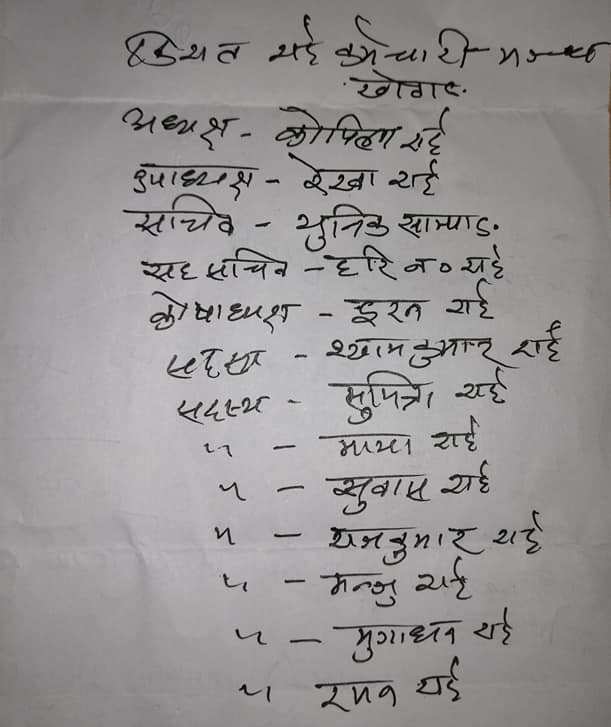 कियत राई कर्मचारी मञ्च
खोटाङ.
अध्यक्ष - कोपिला राई
उपाध्यक्ष - रेखा राई
सचिव - युनिक साम्पाङ.
सह सचिव - हरि ब० राई
कोषाध्यक्ष - इरन राई
सदस्य - श्यामकुमार राई
सदस्य - सुमित्रा राई
〃 - माया राई
〃 - सुवास राई
〃 - राजकुमार राई
〃 - मन्जु राई
〃 - मुगाधन राई
〃 रमन राई